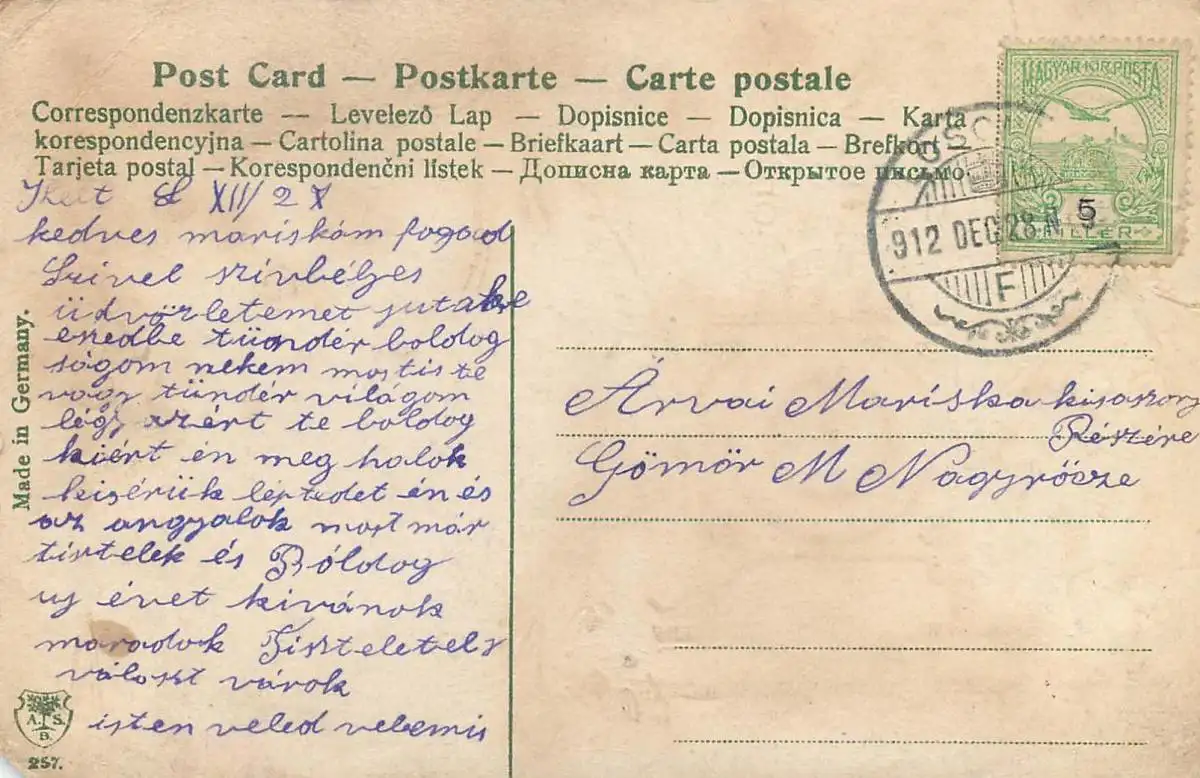 Post Card — Postkarte — Carte postale
Correspondenzkarte — Levelező Lap — Dopisnice — Dopisnica — Karta
korespondencyjna — Cartolina postale — Briefkaart — Carta postala — Brefkort
Tarjeta postal — Korespondenčni lístek — Дописна карта — Открытое письмо
MAGYAR KIR. POSTA
5
912 DEC 28 N
F
XII/2
kedves mariskám fogad
Szivel szivbélyes
üdvözletemet
enedbe tündér boldog
ságom nekem mostis te
vagy tündér világom
légy azért te boldog
kiért én meg halok
kisérük léptedet én és
az angyalok most már
tistelek és Bóldog
uj évet kivánok
maradok Tiszteletel
választ várok
isten veled velemis
Árvai Mariska kisaszony
Részére
Gömör M Nagyrőcze
Made in Germany.
A. S.
B.
257.